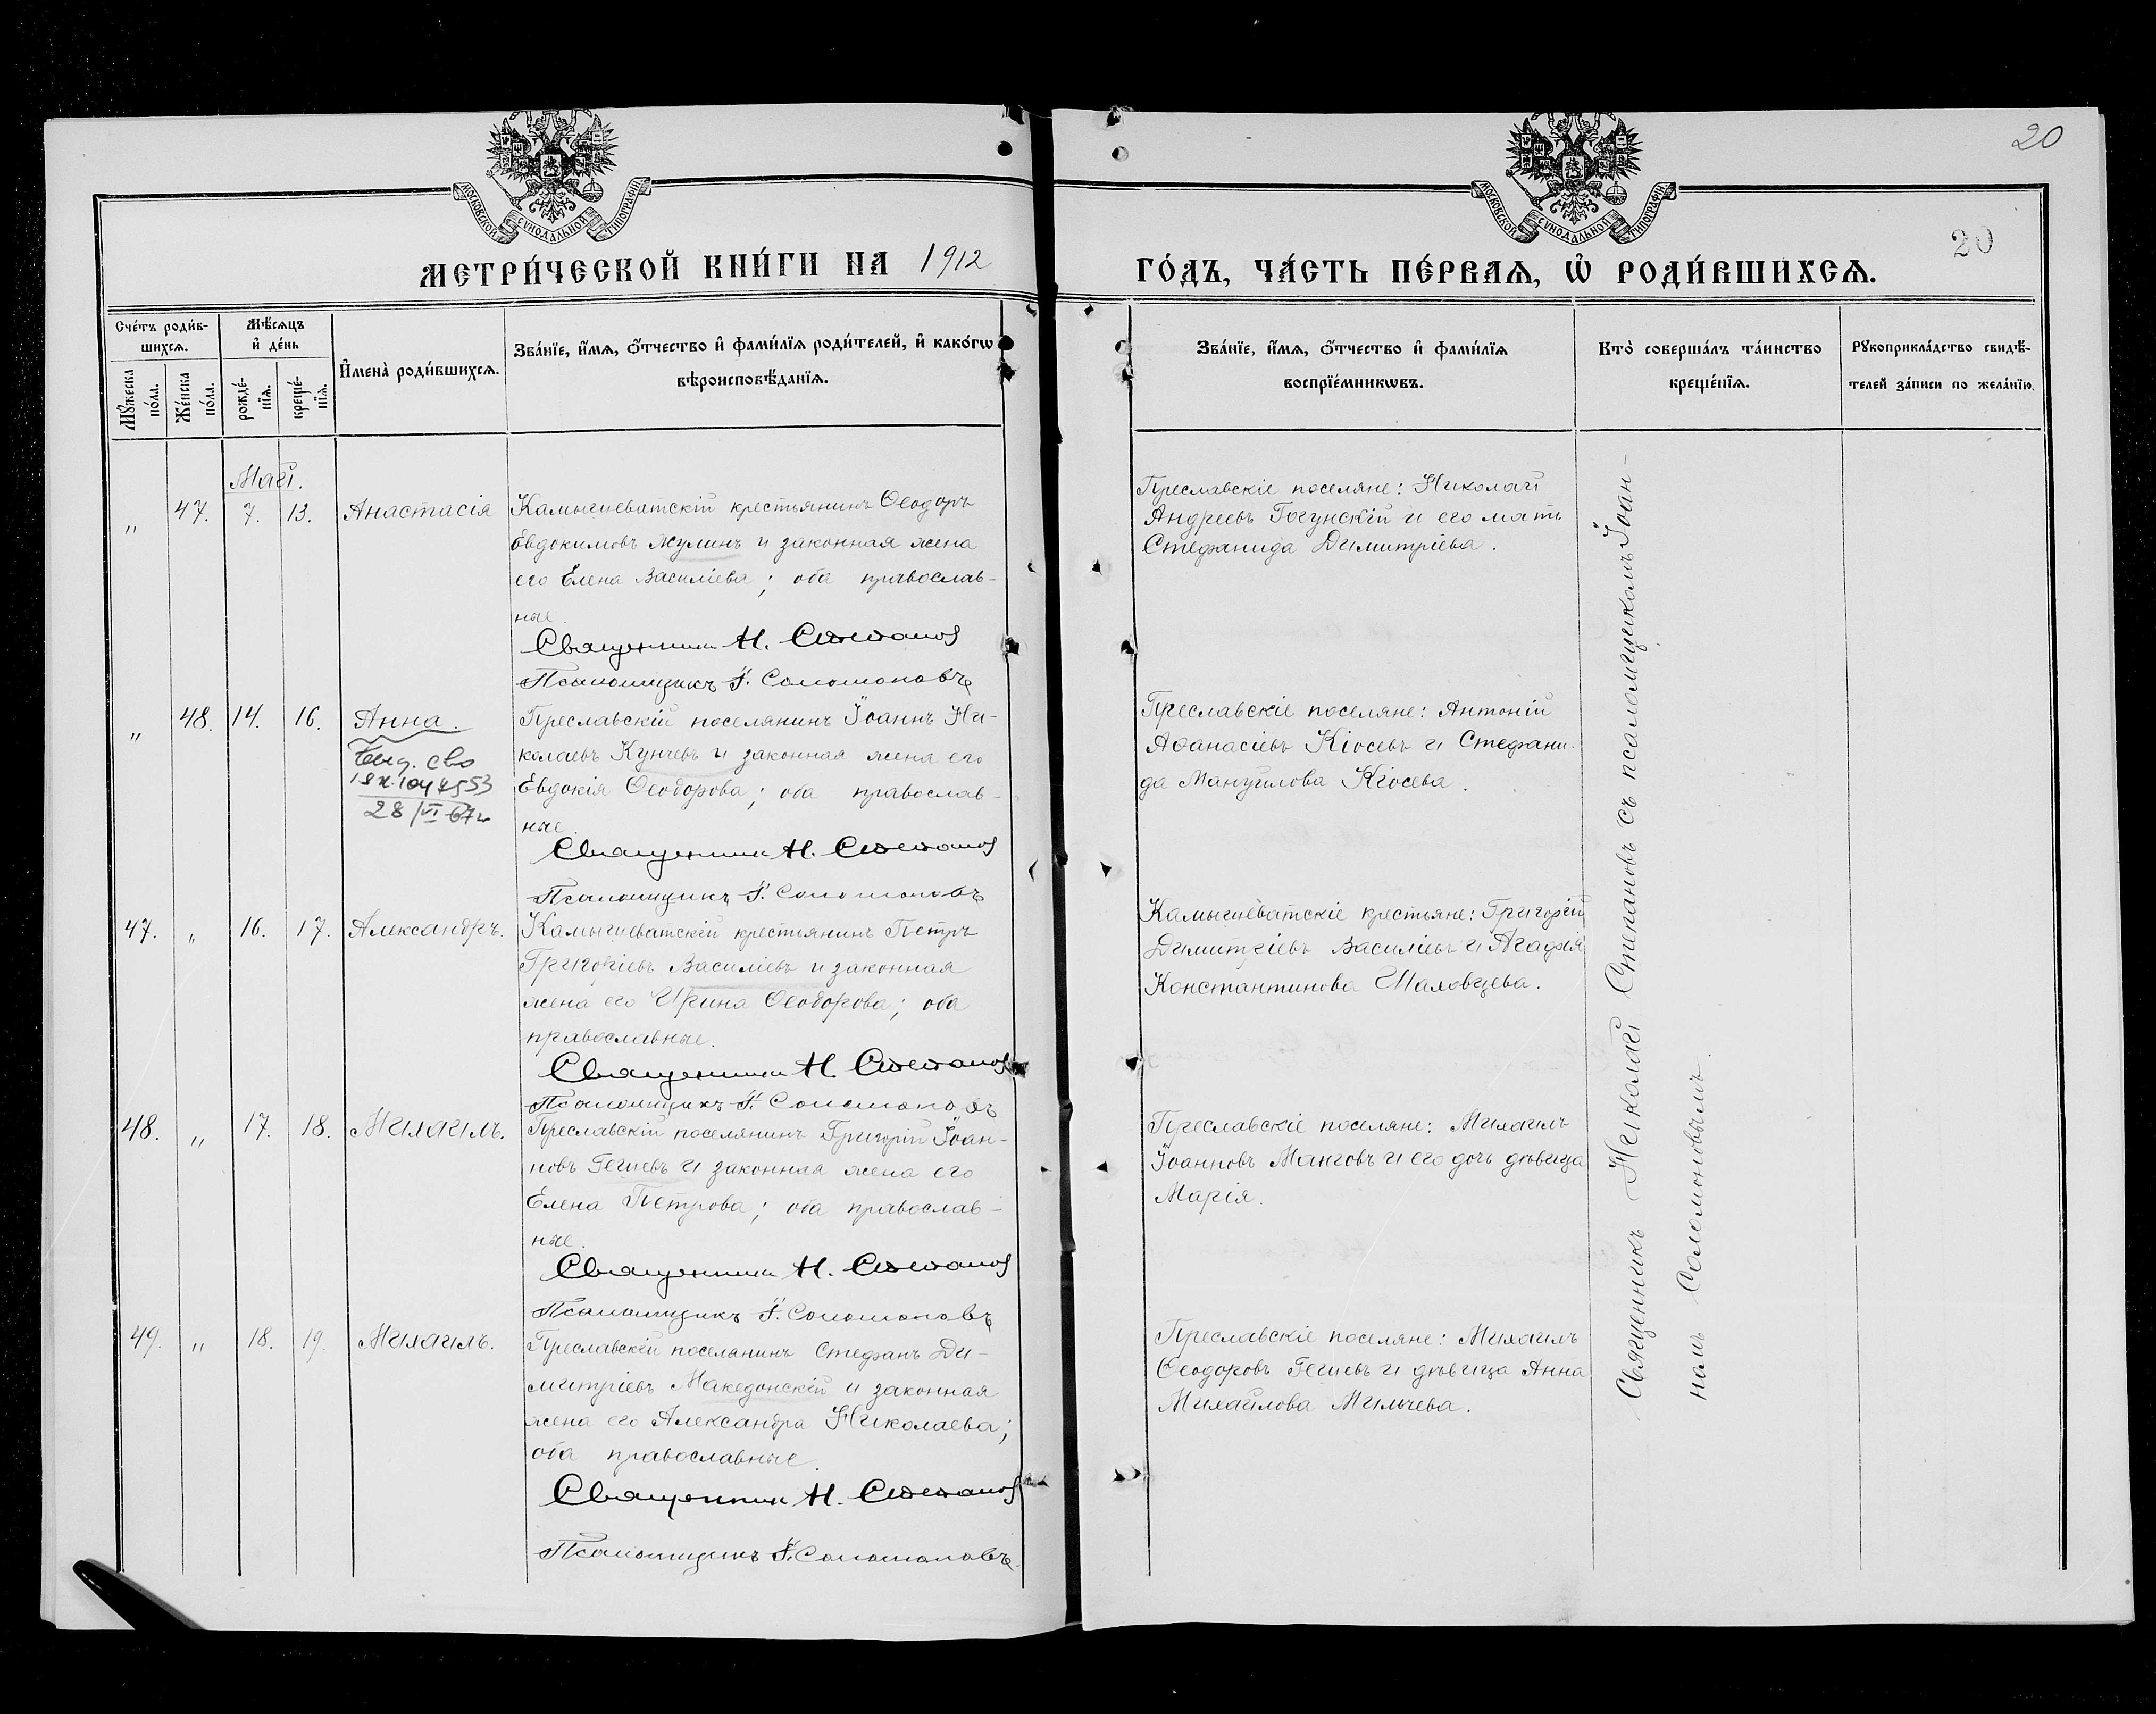 20
МОСКОВСКОЙ СѴНОДАЛЬНОЙ ТИПОГРАФІИ
МОСКОВСКОЙ СѴНОДАЛЬНОЙ ТИПОГРАФІИ
20
МЕТРИ́ЧЕСКОЙ КНИ́ГИ НА 1912
ГО́ДЪ, ЧА́СТЬ ПЕ́РВАѦ, Ѡ҆ РОДИ́ВШИХСѦ.
Сче́тъ роди́в-
шихсѧ.
Мѣ́сѧцъ
и҆ де́нь
Мꙋ́жеска по́ла.
Же́нска по́ла.
рожде́-
нїѧ.
креще́-
нїѧ.
И҆мена̀ роди́вшихсѧ.
Зва́нїе, и҆́мѧ, ѻ҆́тчество и҆ фами́лїѧ роди́телей, и҆ како́гѡ
вѣроисповѣ́данїѧ.
Зва́нїе, и҆́мѧ, ѻ҆́тчество и҆ фами́лїѧ
воспрїе́мникѡвъ.
Кто̀ соверша́лъ та́инство
креще́нїѧ.
Рꙋкоприкла́дство свидѣ́-
телей за́писи по жела́нїю.
Май.
" 47. 7. 13. Анастасія
Камышеватскій крестьянинъ Ѳеодоръ
Евдокимовъ Жулинъ и законная жена
его Елена Василіева; оба православ-
ные.
Священникъ Н. Степанов
Псаломщикъ І. Соломоновъ
Преславскіе поселяне: Николай
Андреевъ Гогунскій и его мать
Стефанида Димитріева.
" 48. 14. 16. Анна.
28/VI 67г
Преславскій поселянинъ Іоаннъ Ни-
колаевъ Кунчевъ и законная жена его
Евдокія Ѳеодорова; оба православ-
ные.
Священникъ Н. Степанов
Псаломщикъ І. Соломоновъ
Преславскіе поселяне: Антоній
Аѳанасіевъ Кіосевъ и Стефани-
да Мануилова Кіосева.
47. " 16. 17. Александръ.
Камышеватскій крестьянинъ Петръ
Григоріевъ Василіевъ и законная
жена его Ирина Ѳеодорова; оба
православные.
Священникъ Н. Степанов
Псаломщикъ І. Соломоновъ
Камышеватскіе крестьяне: Григорій
Димитріевъ Василіевъ и Агафія
Константинова Шаловцева.
48. " 17. 18. Михаилъ.
Преславскій поселянинъ Григорій Іоан-
новъ Гешевъ и законная жена его
Елена Петрова; оба православ-
ные.
Священникъ Н. Степанов
Псаломщикъ І. Соломоновъ
Преславскіе поселяне: Михаилъ
Іоанновъ Манговъ и его дочь дѣвица
Марія.
49. " 18. 19. Михаилъ.
Преславскій поселянинъ Стефанъ Ди-
митріевъ Македонскій и законная
жена его Александра Николаева;
оба православные.
Священникъ Н. Степанов
Псаломщикъ І. Соломоновъ
Преславскіе поселяне: Михаилъ
Ѳеодоровъ Гешевъ и дѣвица Анна
Михайлова Мильчева.
Священникъ Николай Степановъ съ псаломщикомъ Іоан-
номъ Соломоновымъ.